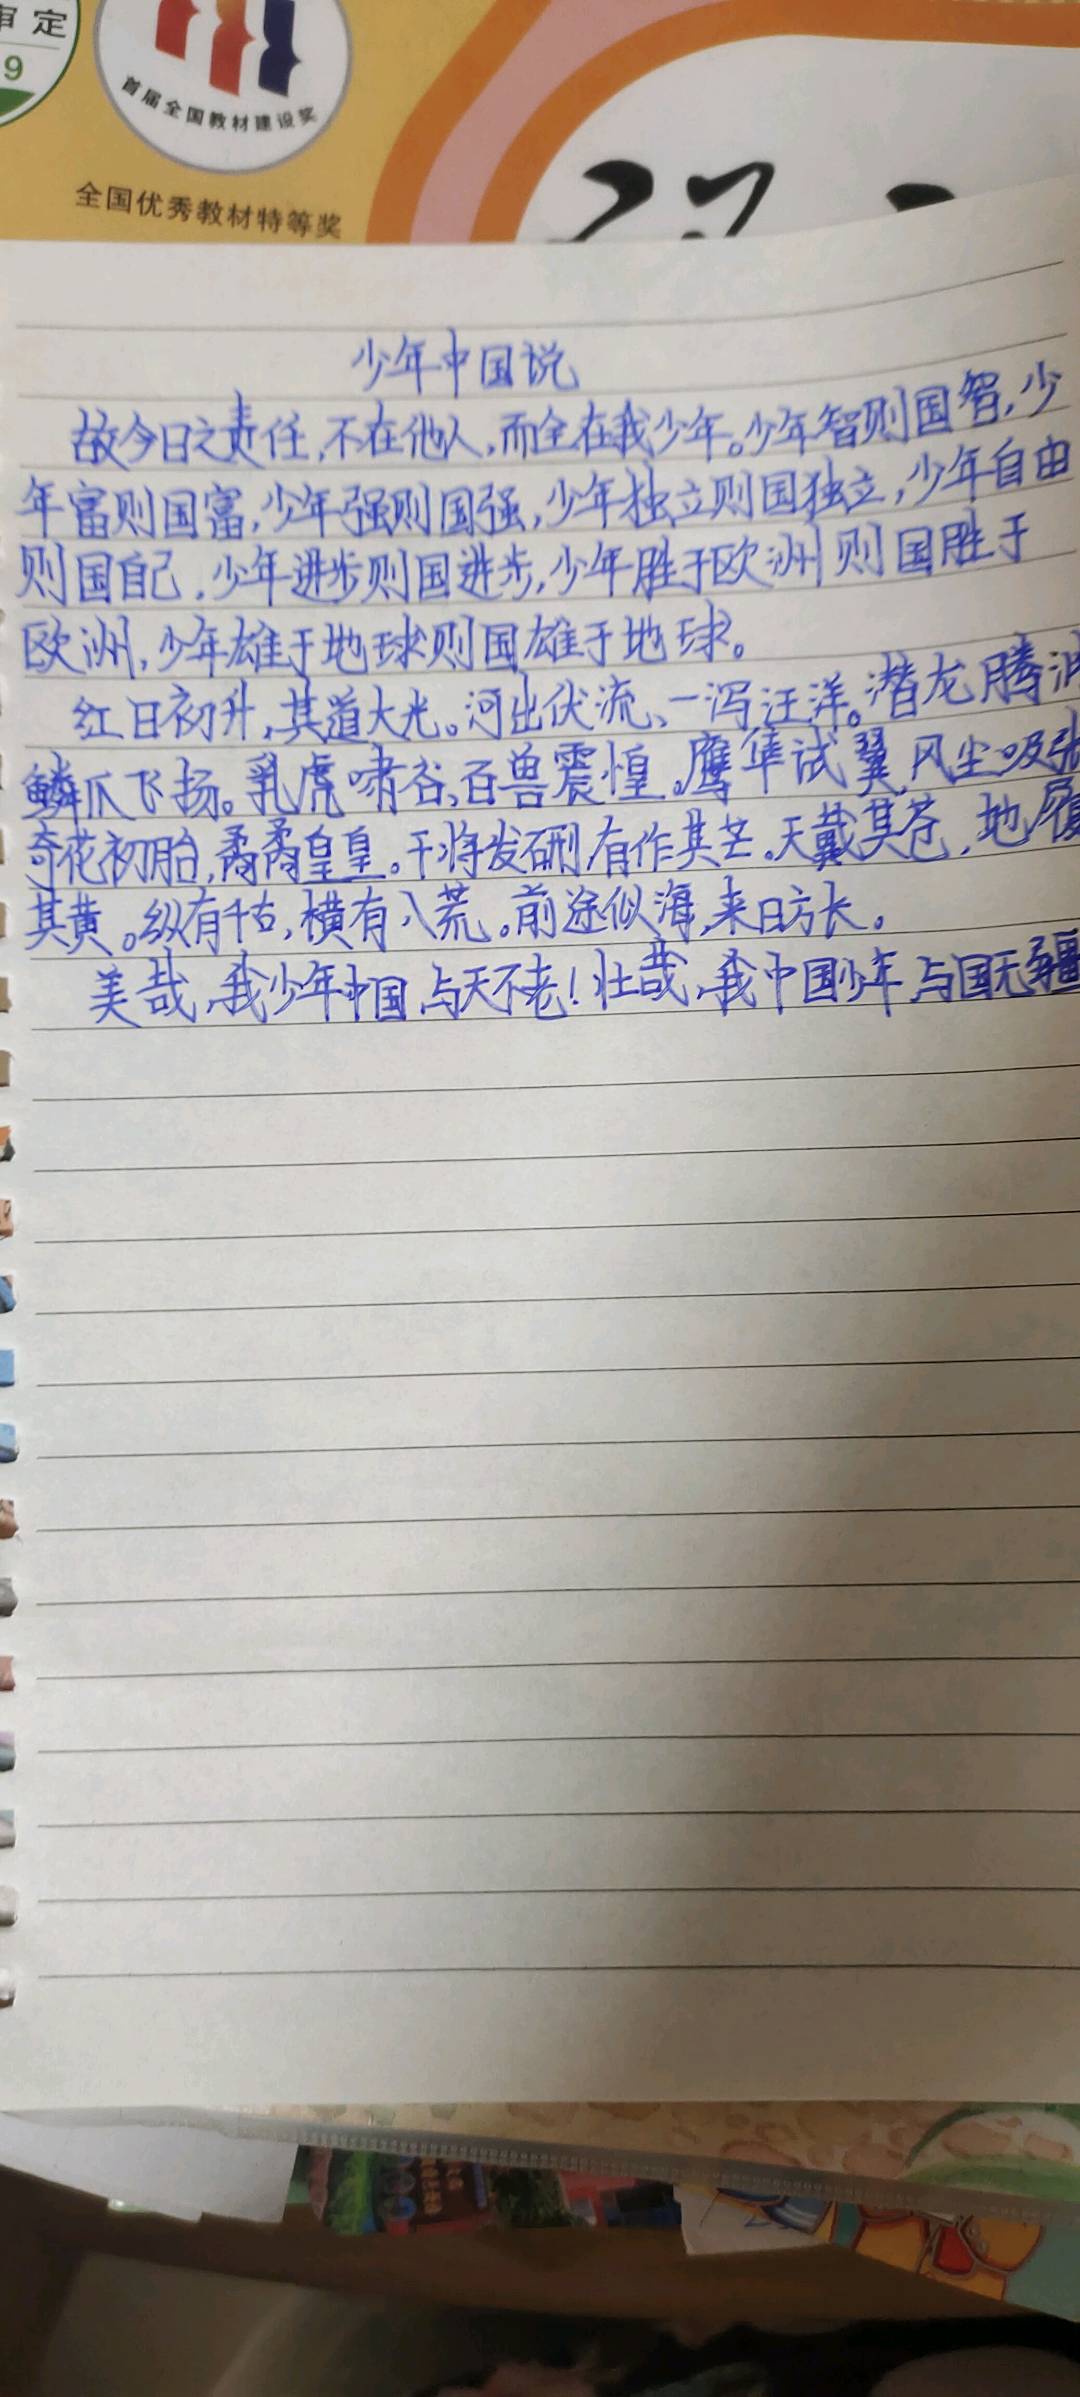 审定
9
首届全国教材建设奖
全国优秀教材特等奖
少年中国说
故今日之责任,不在他人,而全在我少年。少年智则国智,少
年富则国富,少年强则国强,少年独立则国独立,少年自由
则国自己,少年进步则国进步,少年胜于欧洲则国胜于
欧洲,少年雄于地球则国雄于地球。
红日初升,其道大光。河出伏流,一泻汪洋。潜龙腾
鳞爪飞扬。乳虎啸谷,百兽震惶。鹰隼试翼,风尘吸张
奇花初胎,矞矞皇皇。干将发硎,有作其芒。天戴其苍,地履
其黄。纵有千古,横有八荒。前途似海,来日方长。
美哉,我少年中国,与天不老!壮哉,我中国少年,与国无疆